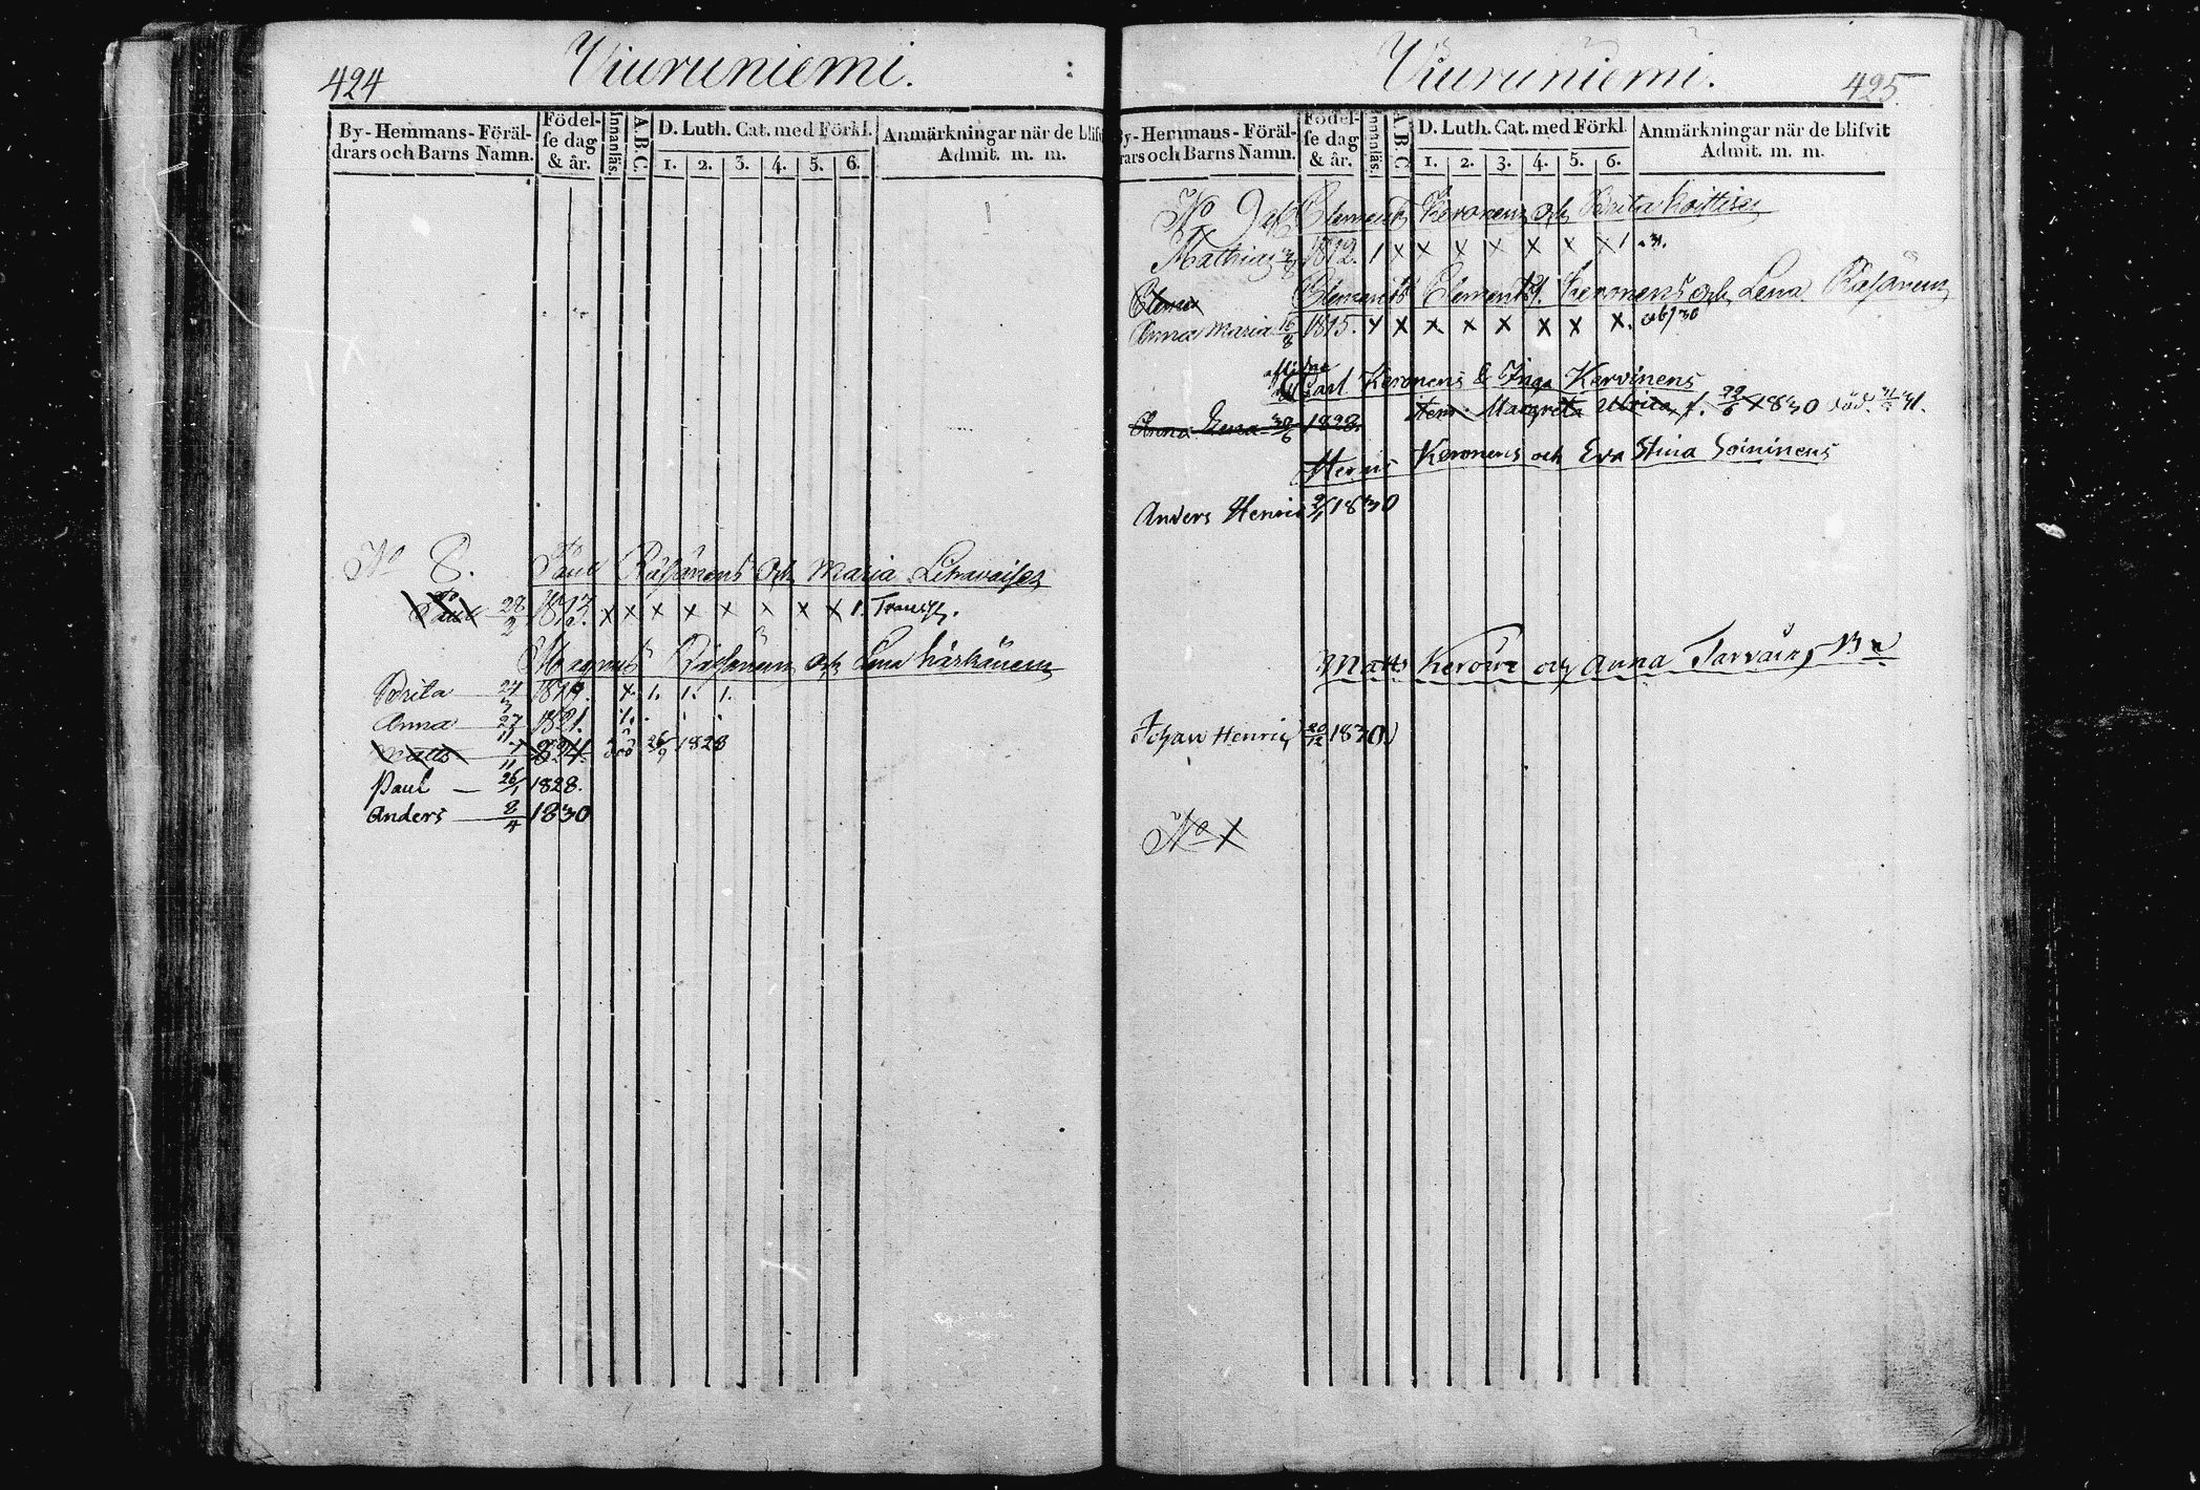 424
Viuruniemi.
By-Hemmans-Föräl-
drars och Barns Namn.
Födel-
se dag
& år.
Innanläs.
A.B.C.
D. Luth. Cat. med Förkl.
1. 2. 3. 4. 5. 6.
Anmärkningar när de blifv
Admit. m. m.
No 8. Paul Räsänens och Maria
Paul 28/2 1813. x x x x x x x x 1. Transp.
Magnus Räsänens och Lena
Brita 24/3 1819. x 1. 1. 1.
Anna 27/11 1821. 1.
Matts 1/11 1824. död 26/9 1828
Paul 26/1 1828.
Anders 8/4 1830
Viuruniemi.
425.
By-Hemmans-Föräl-
rars och Barns Namn.
Födel-
se dag
& år.
Innanläs.
A.B.C.
D. Luth. Cat. med Förkl.
1. 2. 3. 4. 5. 6.
Anmärkningar när de blifvit
Admit. m. m.
No 9 Clements Keronens och Brita
Mathias 1812. 1 x x x x x x x 1 .31.
Clements Clementss. Keronens och Lena Räsänens
Clemen
Anna Maria 16/8 1815. x x x x x x x x. ab/30
aflidne
Carl Keronens & Inga Kervinens
Anna Lena 30/6 1828. item Margreta Ulrica f. 29/6 1830 död. 31.
Henric Keronens och Eva Stina Soininens
Anders Henric 9/1 1830
Matts och Anna
Johan Henric 20/12 1830.
No X